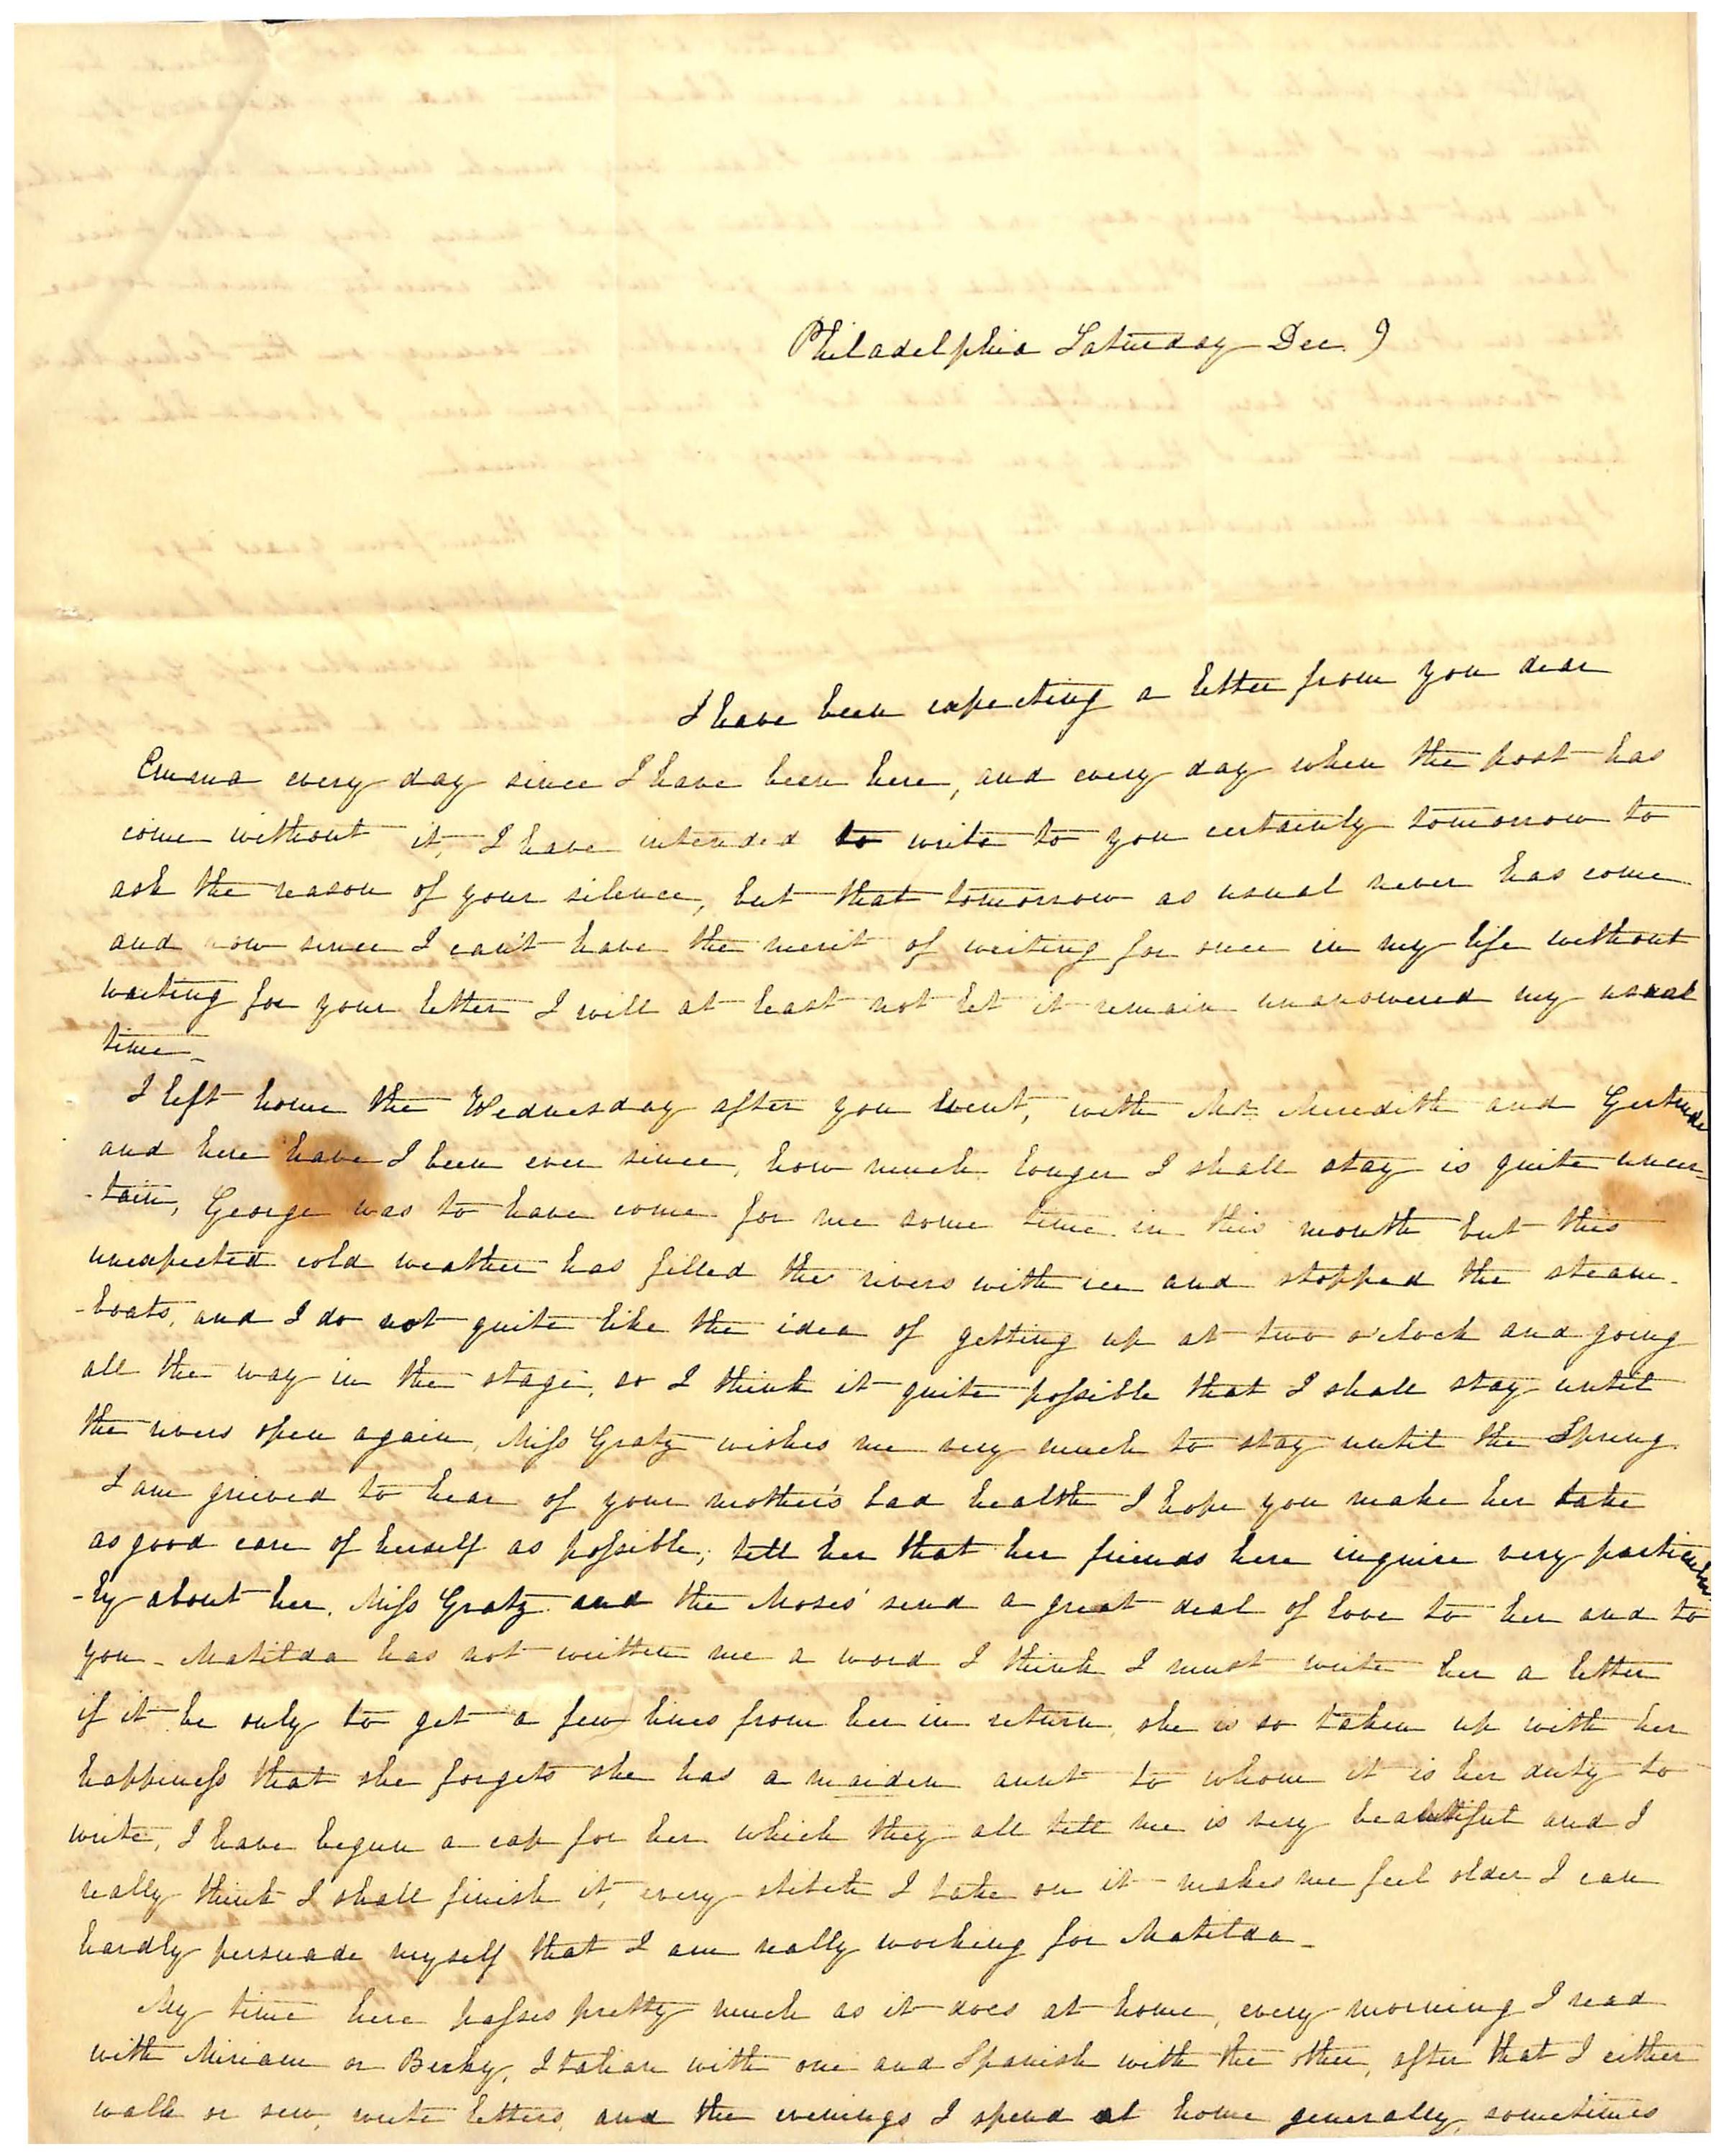 Philadelphia Saturday Dec. 9
I have been expecting a letter from you dear
Emma every day since I have been here, and every day when the post has
come without it, I have intended to write to you certainly tomorrow to
ask the reason of your silence, but that tomorrow as usual never has come
and now since I can't have the merit of writing for once in my life without
waiting for your letter I will at least not let it remain unanswered my usual
time_
I left home the Wednesday after you went, with Mr. Meredith and Gertrude
and here have I been ever since, how much longer I shall stay is quite uncer-
-tain, George was to have come for me some time in this month but this
unexpected cold weather has filled the rivers with ice and stopped the steam-
-boats, and I do not quite like the idea of getting up at two o'clock and going
all the way in the stage, so I think it quite possible that I shall stay until
the rivers open again, Miss Gratz wishes me very much to stay until the Spring.
I am grieved to hear of your mother's bad health I hope you make her take
as good care of herself as possible, tell her that her friends here inquire very particular
-ly about her. Miss Gratz and the Moses' send a great deal of love to her and to
you_ Matilda has not written me a word I think I must write her a letter
if it be only to get a few lines from her in return, she is so taken up with her
happiness that she forgets she has a maiden aunt to whom it is her duty to
write, I have begun a cap for her which they all tell me is very beautiful and I
really think I shall finish it, every stitch I take on it makes me feel older I can
hardly persuade myself that I am really working for Matilda_
My time here passes pretty much as it does at home, every morning I read
with Miriam or Becky, Italian with one and Spanish with the other, after that I either
walk or sew, write letters, and the evenings I spend at home generally, sometimes